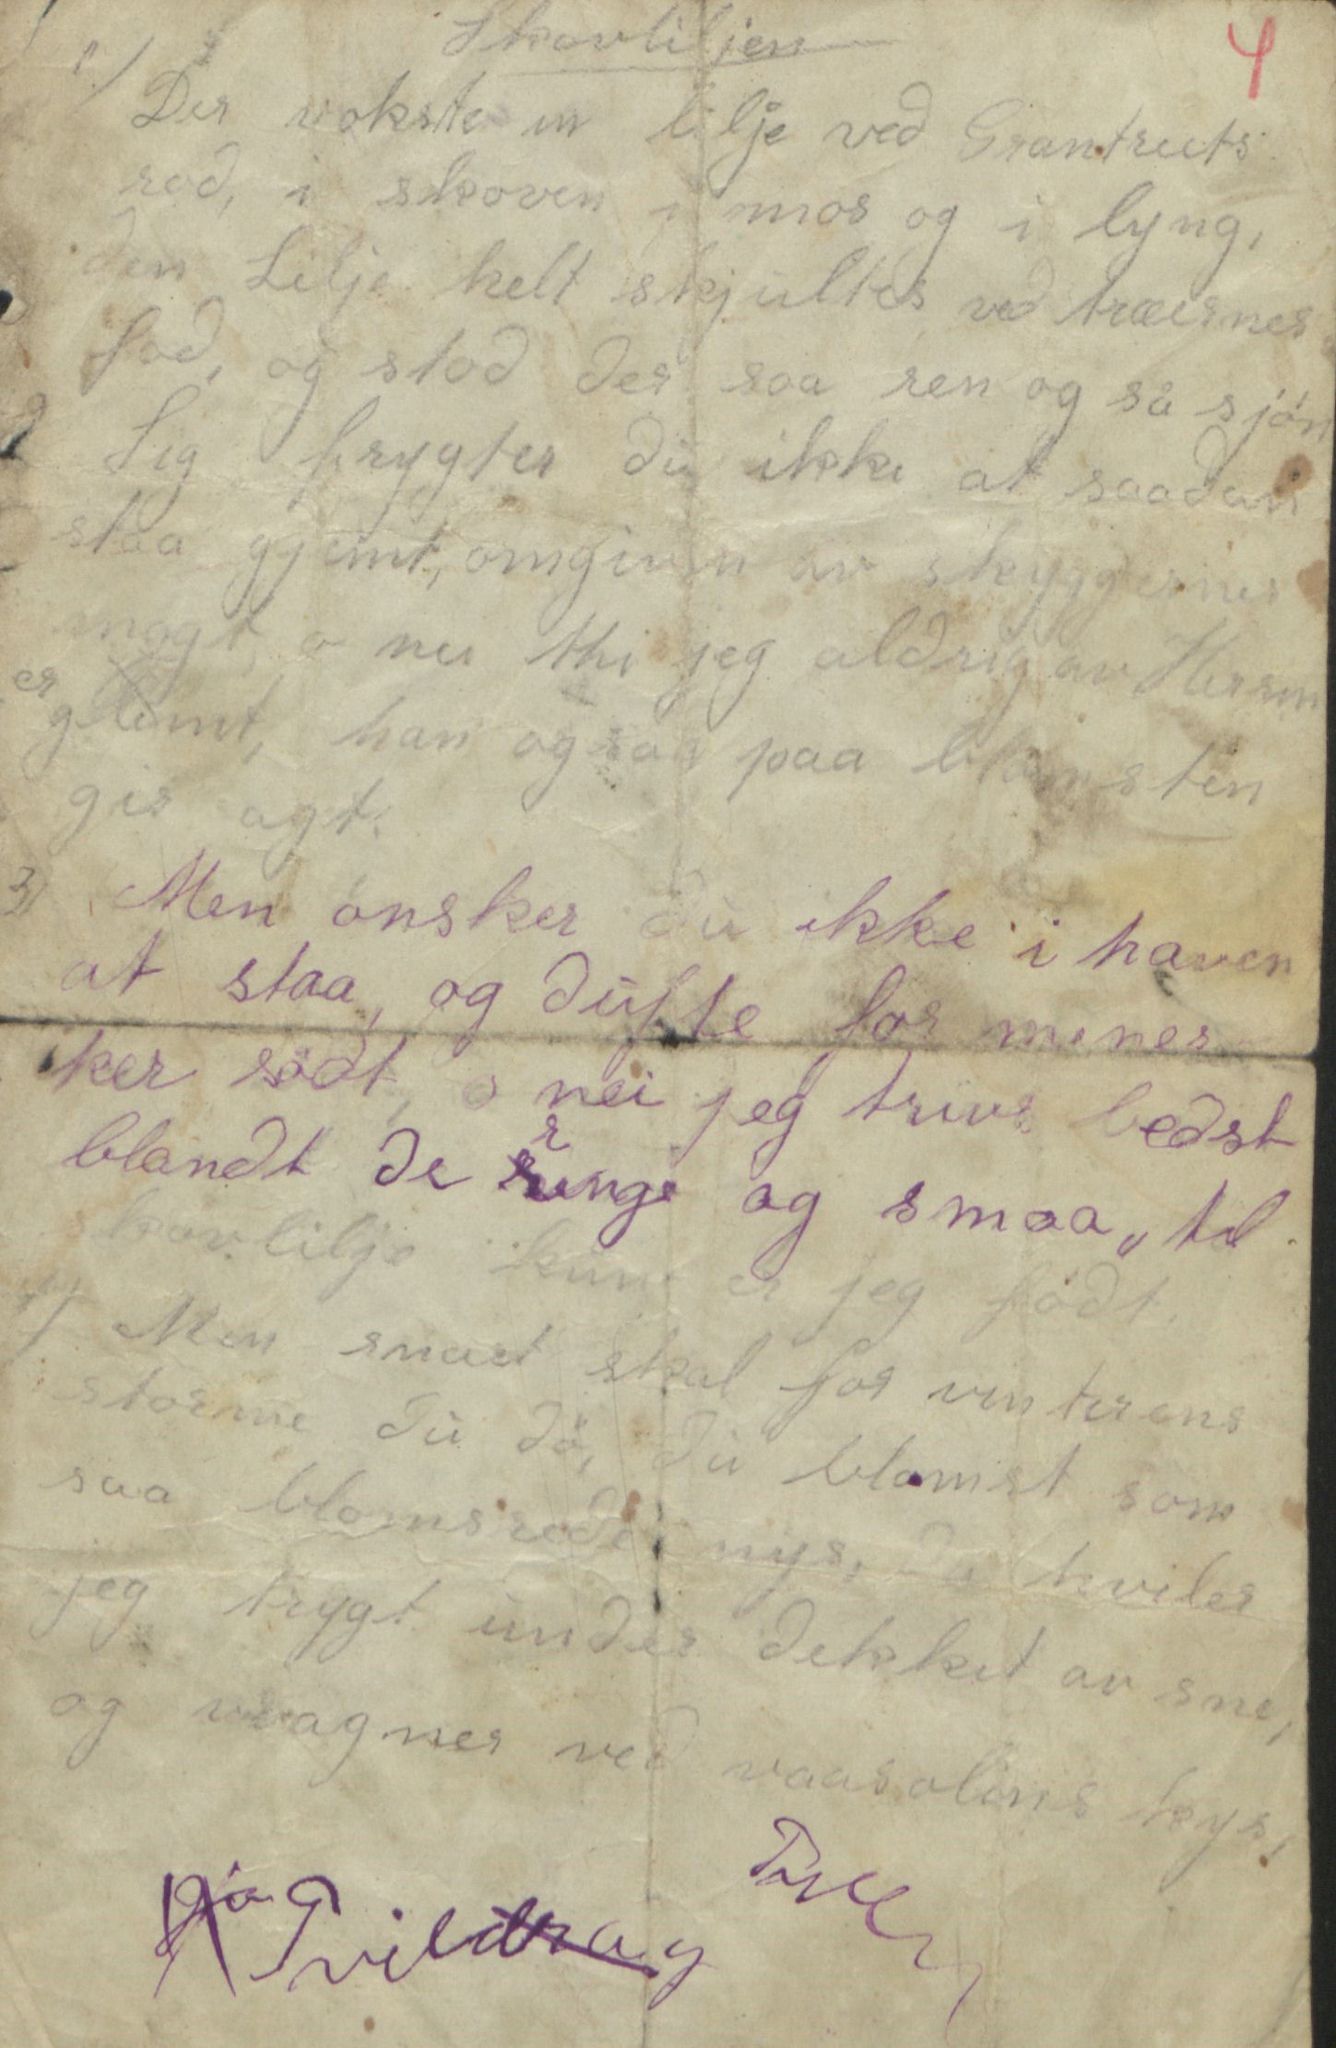 Skovliljen
4
1) Der vokste en lilje ved Grantreets
rod, i skoven i mos og i lyng,
den Lilje helt skjultes ved træernes
fod, og stod der saa ren og så sjøn
2 Sig frygter du ikke at saadan
staa gjemt, omgiven av skyggernes
magt, o nei thi jeg aldrig av Herren
er glemt, han ogsaa paa blomsten
gir agt.
3) Men ønsker du ikke i haven
at staa, og dufte for menes
ker sødt, o nei jeg trives bedst
blandt de ringe og smaa, til
skovlilje kun er jeg født.
4) Men snart skal for vinterens
storme du dø, du blomst som
saa blomsrede nys, da hviler
jeg trygt under dekket av sne,
og vvagner ved vaarsolens kys,